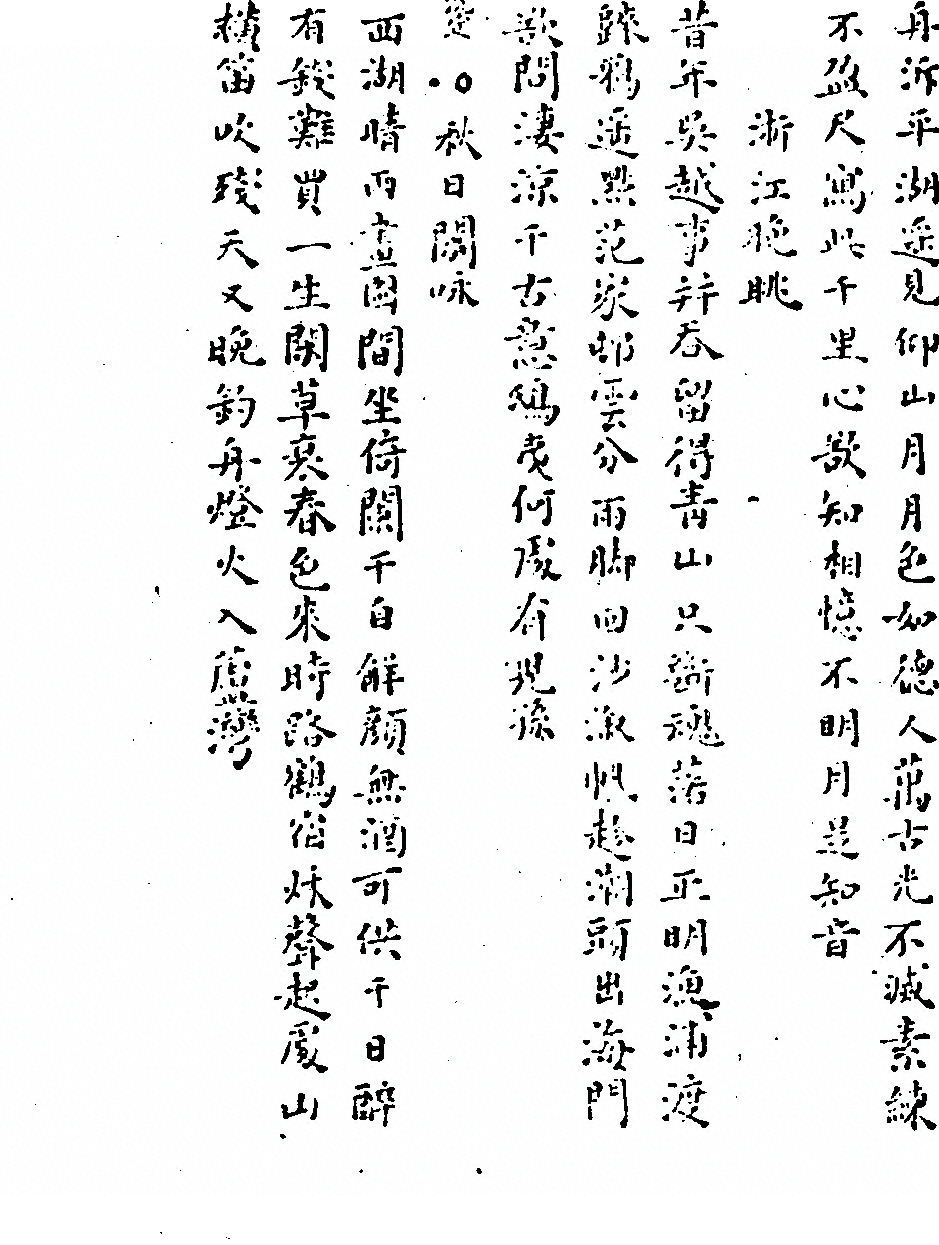 舟泝平湖遥見仰山月月色如德人萬古光不滅素練
不盈尺寫此千里心欲知相憶不明月是知音
浙江晚眺
昔年吳越事并吞留得青山只斷魂落日正明漁浦渡
踈鴉遥點范家邨雲分雨脚回沙漵帆趁潮頭出海門
欲問淒涼千古意鴟夷何處有現孫
秋日閑咏
西湖晴雨畫圖間坐倚闌干自解顔無酒可供千日醉
有錢難買一生閑草裹春色來時路鶴宿秌聲起處山
橫笛吹殘天又晚釣舟燈火入蘆灣